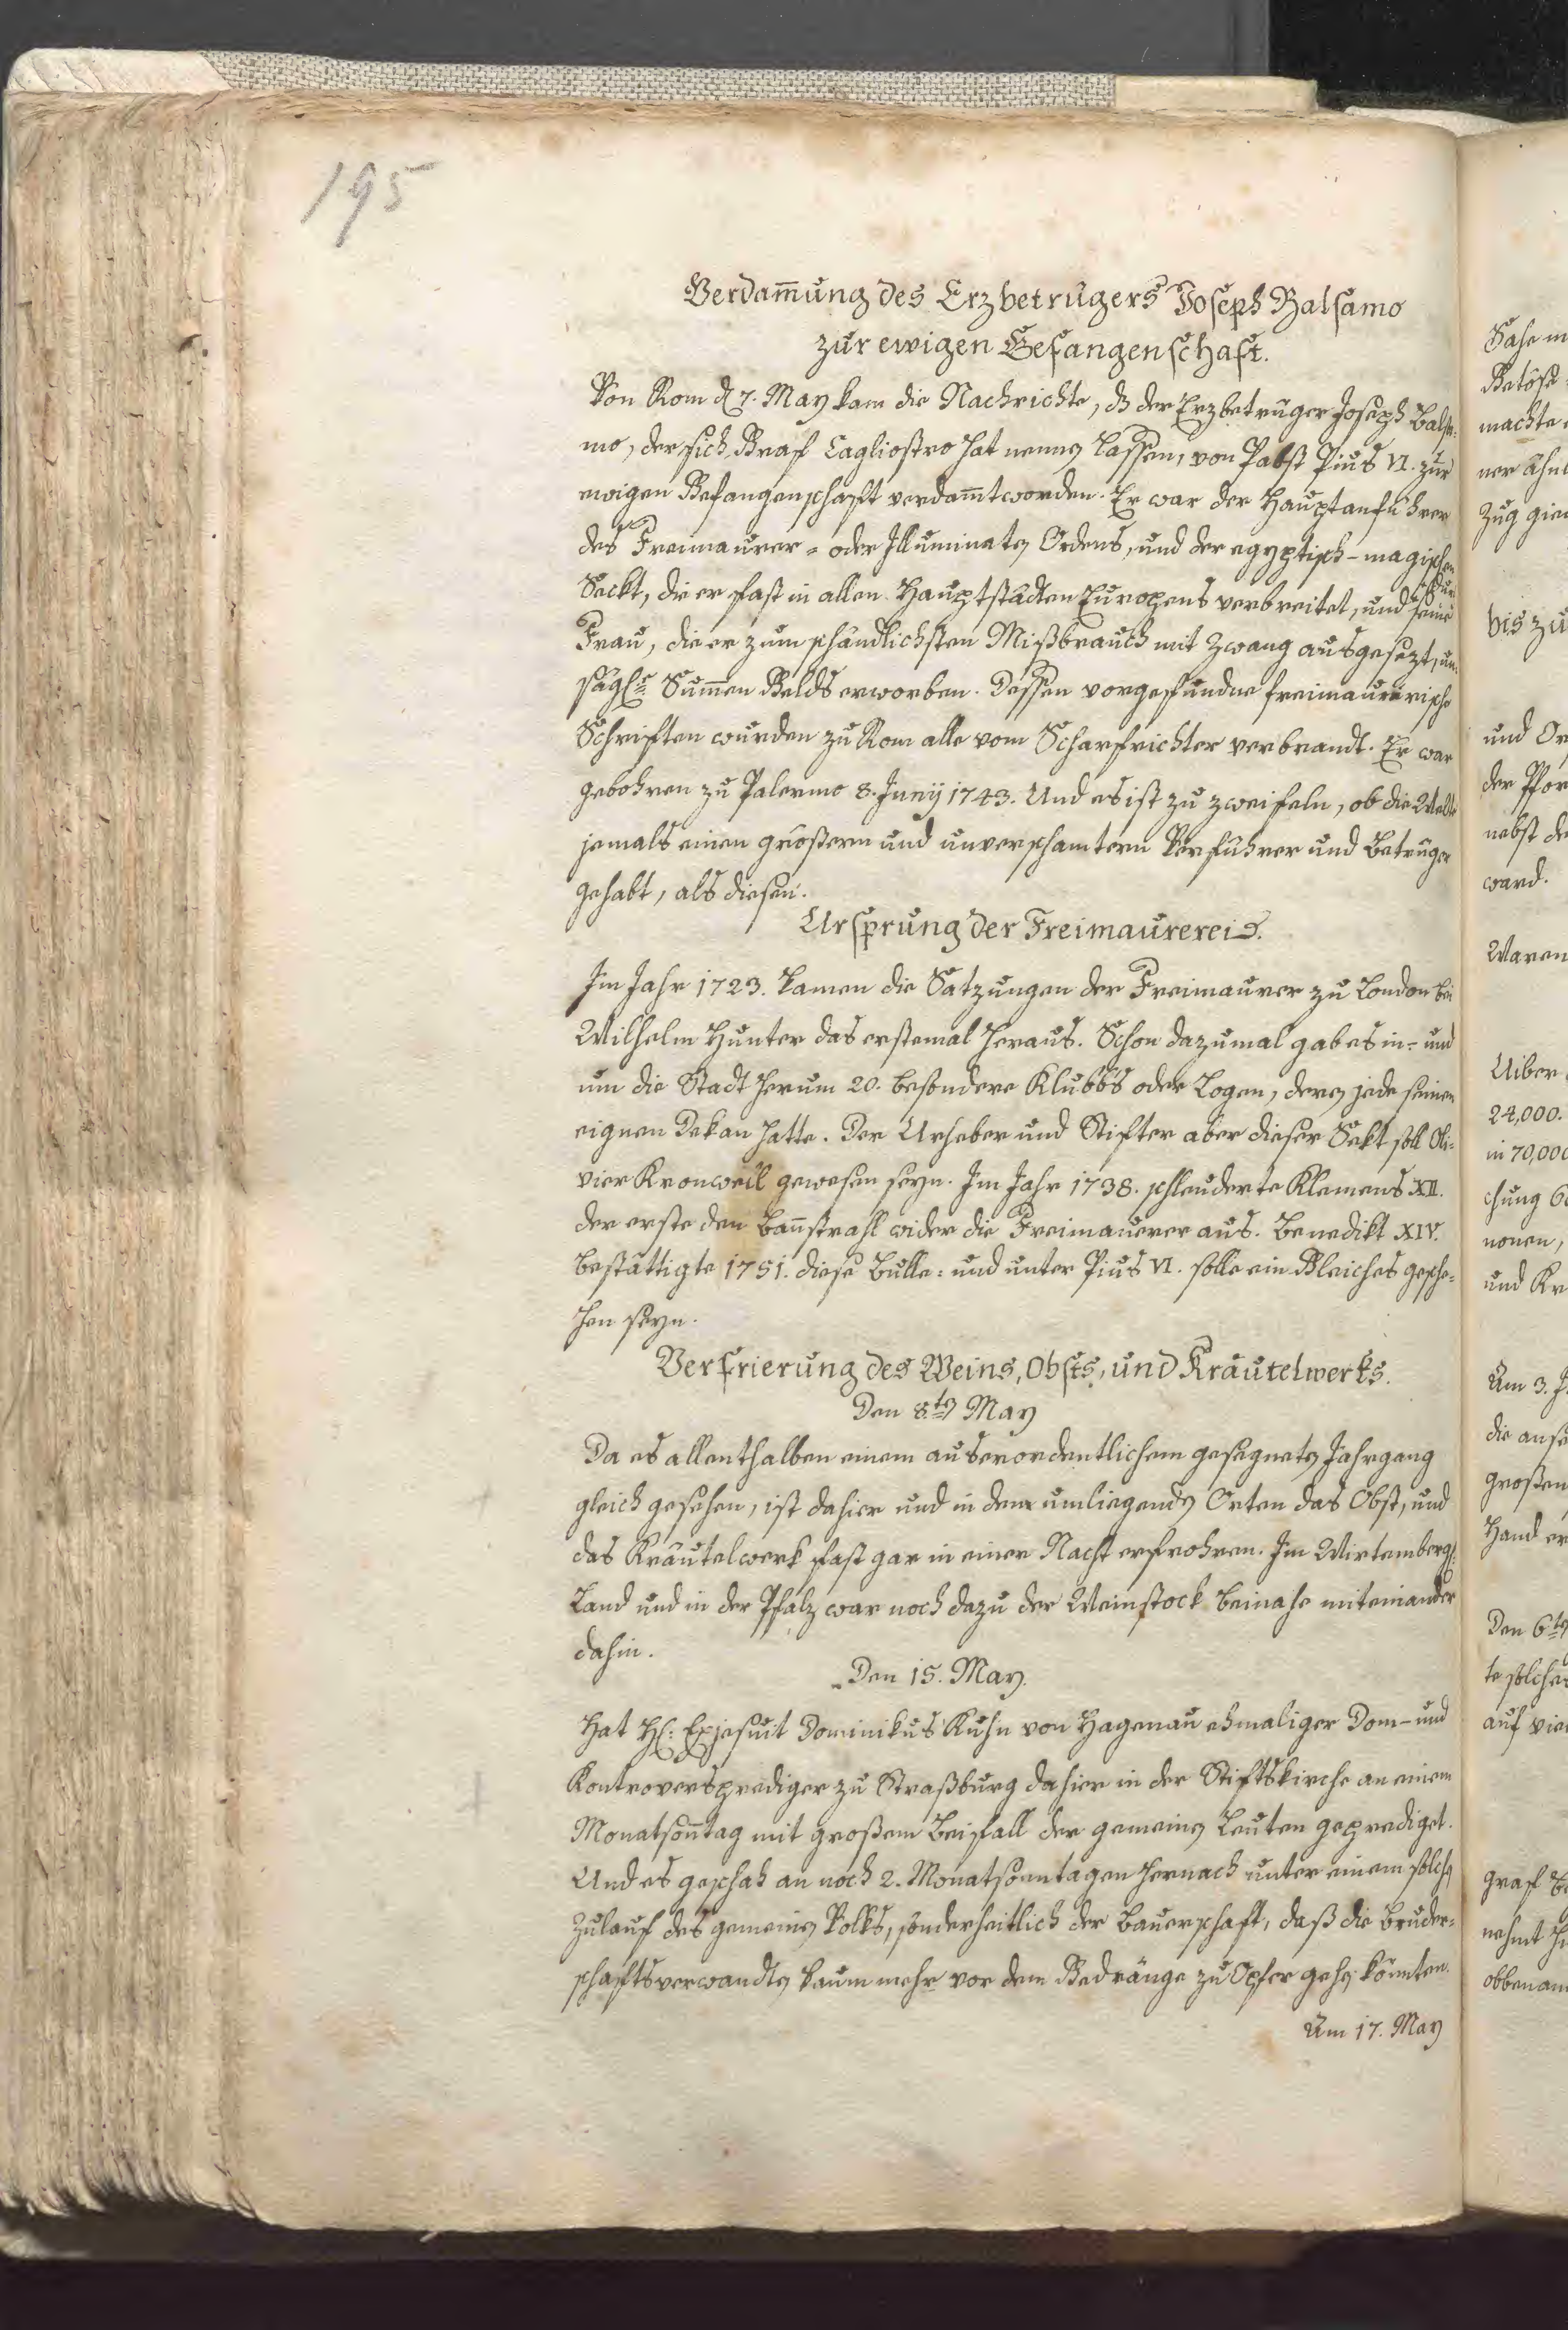 195
Verdam̅ung des Erzbetrügers Joseph Balsamo
zur ewigen Gefangenschaft.
Von Rom d. 7. May kam die Nachrichte, dß der Erzbetrüger Joseph Balsa-
mo, der sich Graf Cagliostro hat nennen lassen, von Pabst Pius VI. zur
ewigen Gefangenschaft verdam̅t worden. Er war der Hauptanführer
des Freimaurer- oder Illuminaten Ordens, und der egyptisch-magischen
Seckt, die er fast in allen Hauptstädten Europens verbreitet, und durch seine
Frau, die er zum schändlichsten Mißbrauch mit Zwang ausgesezt, un-
säglche Sum̅en Gelds erworben. Dessen vorgefundne freimaurerische
Schriften wurden zu Rom alle vom Scharfrichter verbrandt. Er war
gebohren zu Palermo 8. Junÿ 1743. Und es ist zu zweifeln, ob die Welt
jemals einen größern und unverschamtern Verführer und Betrüger
gehabt, als diesen.
Ursprung der Freimaurerei.
Im Jahr 1723. kamen die Satzungen der Freimaurer zu London bei
Wilhelm Hunter das erstemal heraus. Schon dazumal gab es in- und
um die Stadt herum 20. besondere Klubbs oder Logen, deren jede seinen
eignen Dekan hatte. Der Urheber und Stifter aber dieser Sekt soll Oli-
vier Kronweil gewesen seyn. Im Jahr 1738. schleuderte Klemens XII.
der erste den Ban̅strahl wider die Freimaurer aus. Benedikt XIV.
bestättigte 1751. diese Bulle: und unter Pius VI. solle ein Gleiches gesche-
hen seyn.
Verfrierung des Weins, Obsts, und Kräutelwerks.
Den 8ten May
Da es allenthalben einem auserordentlichem gesegneten Jahrgang
gleich gesehen, ist dahier und in den umliegenden Orten das Obst, und
das Kräutelwerk fast gar in einer Nacht erfrohren. Im Wirtemberg.
Land und in der Pfalz war noch dazu der Weinstock beinahe miteinander
dahin.
Den 15. May.
Hat H: Exjesuit Dominikus Kuhn von Hagenau ehmaliger Dom- und
Kontroversprediger zu Straßburg dahier in der Stiftskirche an einem
Monatson̅tag mit großem Beifall der gemeinen Leuten geprediget.
Und es geschah an noch 2. Monatsonntagen hernach unter einem solchen
Zulauf des gemeinen Volks, sonderheitlich der Bauerschaft, daß die Bruder-
schaftsverwandten kaum mehr vor dem Gedränge zu Opfer gehen könnten.
Am 17. May
Sahe
machte
Zug
bis zu
und
nebst
ward.
Waren
Uiber
24,000.
in 70,000
chung
nonen,
und
Am 3.
großen
Hand
Den 6ten
te solches
auf
Graf